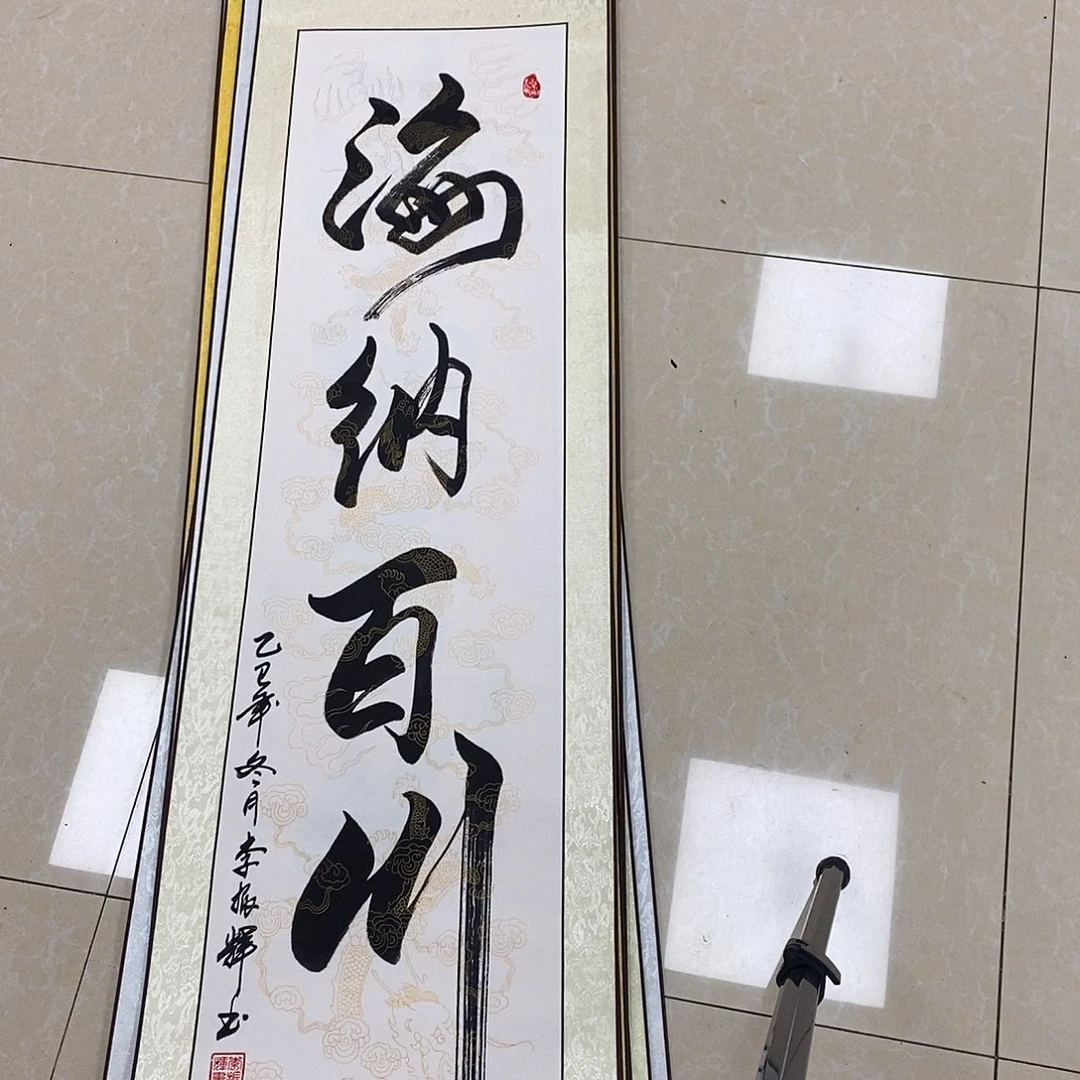 海纳百川
乙巳年冬月李振辉书